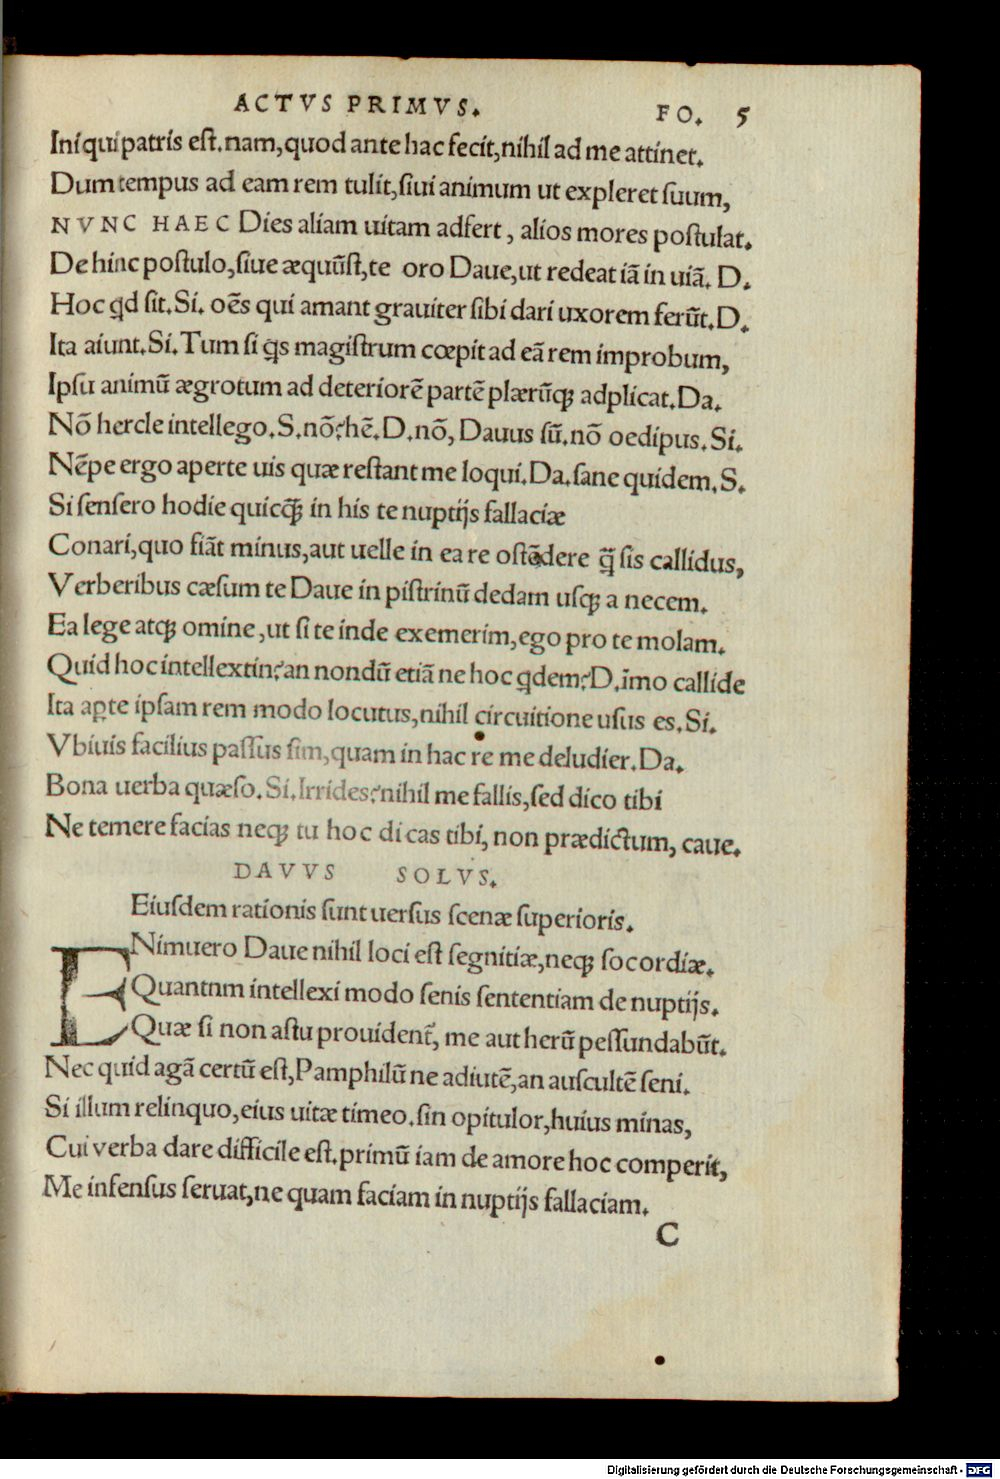 ACTVS PRIMVS.
FO. 5
Iniqui patris est. nam, quod ante hac fecit, nihil ad me attinet.
Dum tempus ad eam rem tulit, siui animum ut expleret suum,
NVNC HAEC Dies aliam uitam adfert, alios mores postulat.
De hinc postulo, siue æquũst, te oro Daue, ut redeat iã in uiã. D.
Hoc qd sit. Si. oẽs qui amant grauiter sibi dari uxorem ferũt. D.
Ita aiunt. Si. Tum si qs magistrum cœpit ad eã rem improbum,
Ipsu animũ ægrotum ad deteriorẽ partẽ plærũqȝ adplicat. Da.
Nõ hercle intellego. S. nõ? hẽ. D. nõ, Dauus sũ. nõ oedipus. Si.
Nẽpe ergo aperte uis quæ restant me loqui. Da. sane quidem. S.
Si sensero hodie quicq̃ȝ in his te nuptijs fallaciæ
Conari, quo fiãt minus, aut uelle in ea re ostẽdere q̃ sis callidus,
Verberibus cæsum te Daue in pistrinũ dedam usqȝ a necem.
Ea lege atqȝ omine, ut si te inde exemerim, ego pro te molam.
Quid hoc intellextin? an nondũ etiã ne hoc qdem? D. ĩmo callide
Ita apte ipsam rem modo locutus, nihil circuitione usus es. Si.
Vbiuis facilius passus sim, quam in hac re me deludier. Da.
Bona uerba quæso. Si. Irrides? nihil me fallis, sed dico tibi
Ne temere facias neqȝ tu hoc dicas tibi, non prædictum, caue.
DAVVS SOLVS.
Eiusdem rationis sunt uersus scenæ superioris.
ENimuero Daue nihil loci est segnitiæ, neqȝ socordiæ.
Quantnm intellexi modo senis sententiam de nuptijs.
Quæ si non astu prouident̃, me aut herũ pessundabũt.
Nec quid agã certũ est, Pamphilũ ne adiutẽ, an auscultẽ seni.
Si illum relinquo, eius uitæ timeo. sin opitulor, huius minas,
Cui verba dare difficile est. primũ iam de amore hoc comperit,
Me infensus seruat, ne quam faciam in nuptijs fallaciam.
C
Digitalisierung gefördert durch die Deutsche Forschungsgemeinschaft - DFG